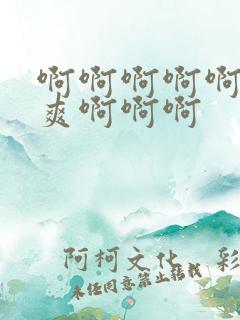 啊啊啊啊啊
爽啊啊啊
阿柯文化 彩
未经同意禁止转载